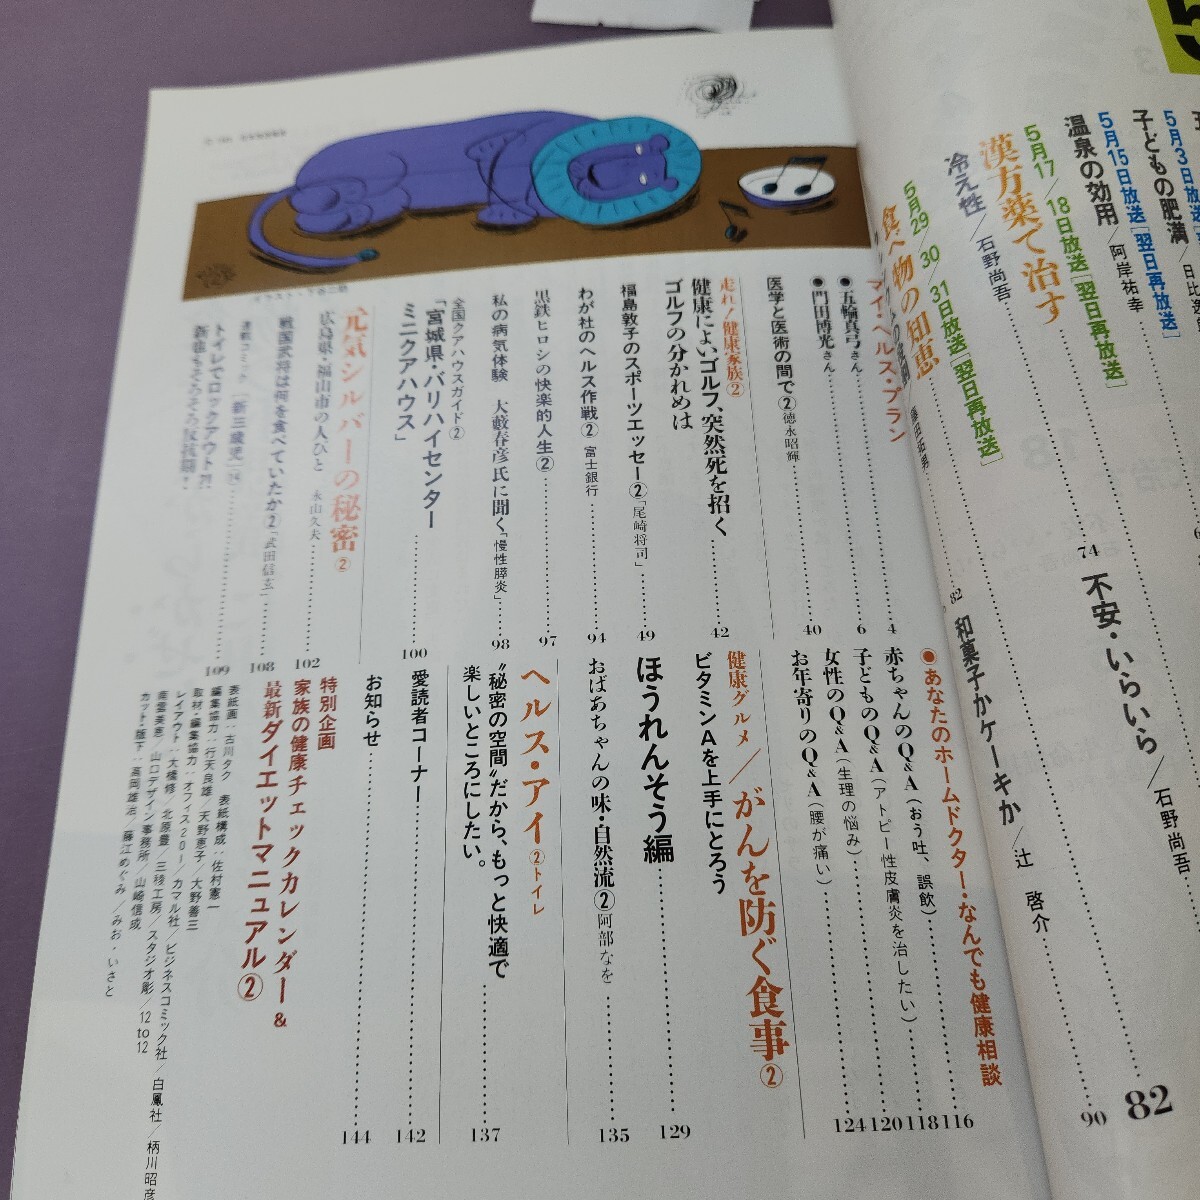 5
5月3日放送
子どもの肥満
5月15日放送[翌日再放送]
温泉の効用/阿岸祐幸
5月17/18日放送[翌日再放送]
漢方薬で治す
冷え性/石野尚吾
74
不安・いらいら/石野尚吾
82
5月29/30/31日放送[翌日再放送]
食べ物の知恵
82
和菓子かケーキか/辻 啓介
90
マイ・ヘルス・プラン
●五輪真弓さん
4
●門田博光さん
6
医学と医術の間で② 徳永昭輝
40
走れ!健康家族②
健康によいゴルフ、突然死を招く
ゴルフの分かれめは
42
福島敦子のスポーツエッセー②「尾崎将司」
49
わが社のヘルス作戦② 富士銀行
94
黒鉄ヒロシの快楽的人生②
97
私の病気体験 大藪春彦氏に聞く「慢性膵炎」
98
全国クアハウスガイド②
「宮城県・バリハイセンター
ミニクアハウス」
100
元気シルバーの秘密②
広島県・福山市の人びと 永山久夫
102
戦国武将は何を食べていたか②「武田信玄」
108
連載コミック[新三歳児]
トイレでロックアウト?!
109
●あなたのホームドクター・なんでも健康相談
116
赤ちゃんのQ&A(おう吐、誤飲)
118
子どものQ&A(アトピー性皮膚炎を治したい)
120
女性のQ&A(生理の悩み)
124
お年寄りのQ&A(腰が痛い)
健康グルメ/がんを防ぐ食事②
ビタミンAを上手にとろう
ほうれんそう編
129
おばあちゃんの味・自然流② 阿部なを
135
ヘルス・アイ②トイレ
“秘密の空間”だから、もっと快適で
楽しいところにしたい。
137
愛読者コーナー
142
お知らせ
144
特別企画
家族の健康チェックカレンダー&
最新ダイエットマニュアル②
表紙画:古川タク 表紙構成:佐村憲一
編集協力:行天良雄/天野恵子/大野善三
取材・編集協力:オフィス201/カマル社/ビジネスコミック社/白鳳社/柄川昭彦
レイアウト:大橋修/北原豊/三稜工房/スタジオ彫/12to12
山口デザイン事務所/山崎信成
カット・版下:高岡雄治/藤江めぐみ/みお・いさと